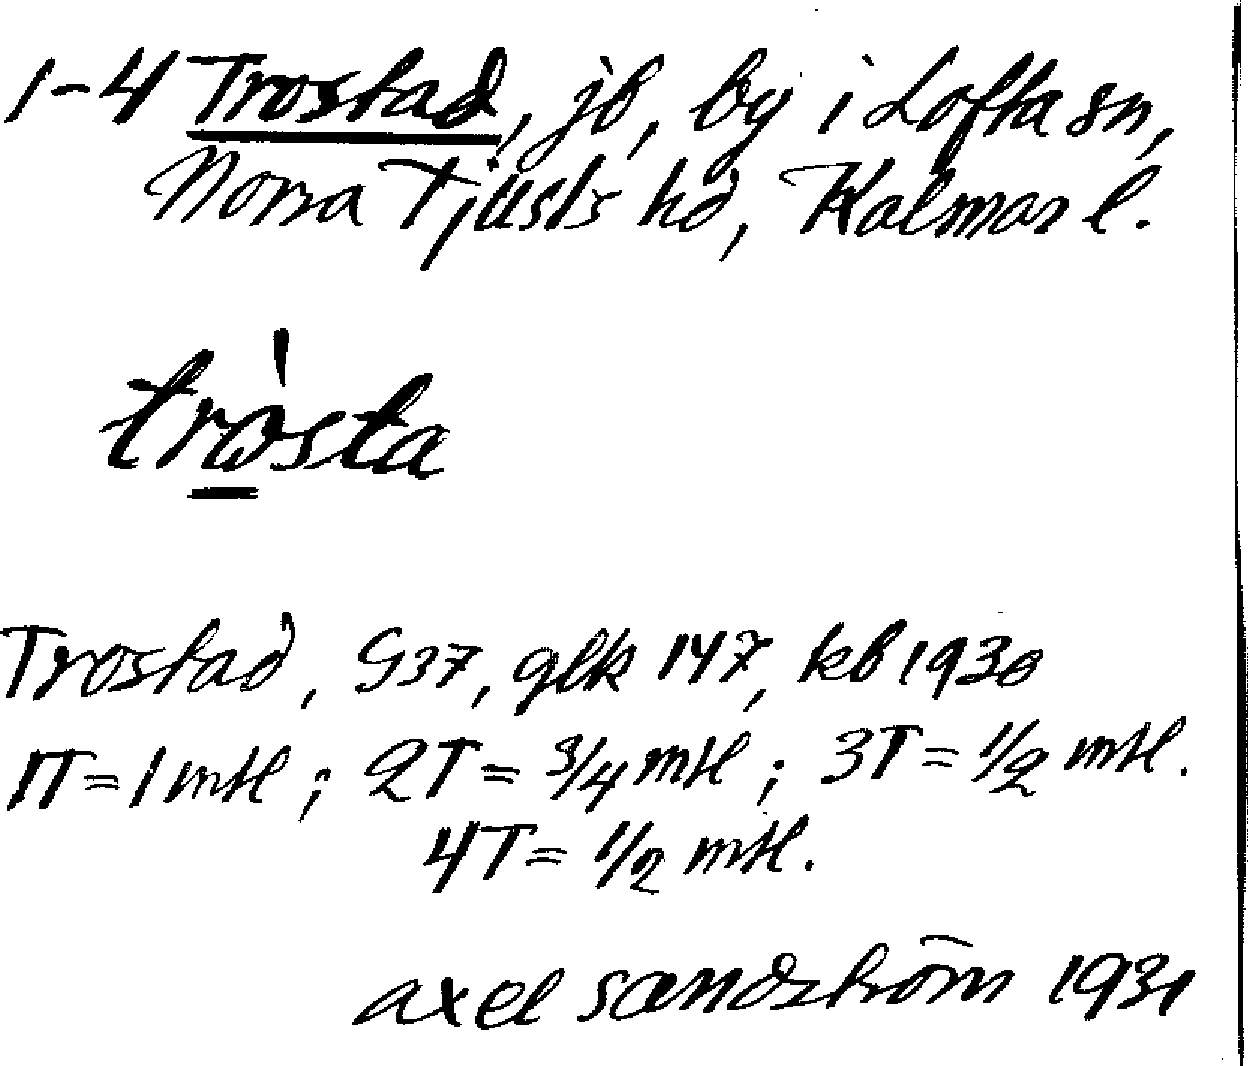 1-4 Trostad, jb, by i Lofta sn,
Norra Tjusts hd, Kalmar l.
tròsta
Trostad, G37, glk 147, kb 1930
1T = 1 mtl ; 2T = 3/4 mtl ; 3T = 1/2 mtl.
4T = 1/2 mtl.
axel sandström 1931